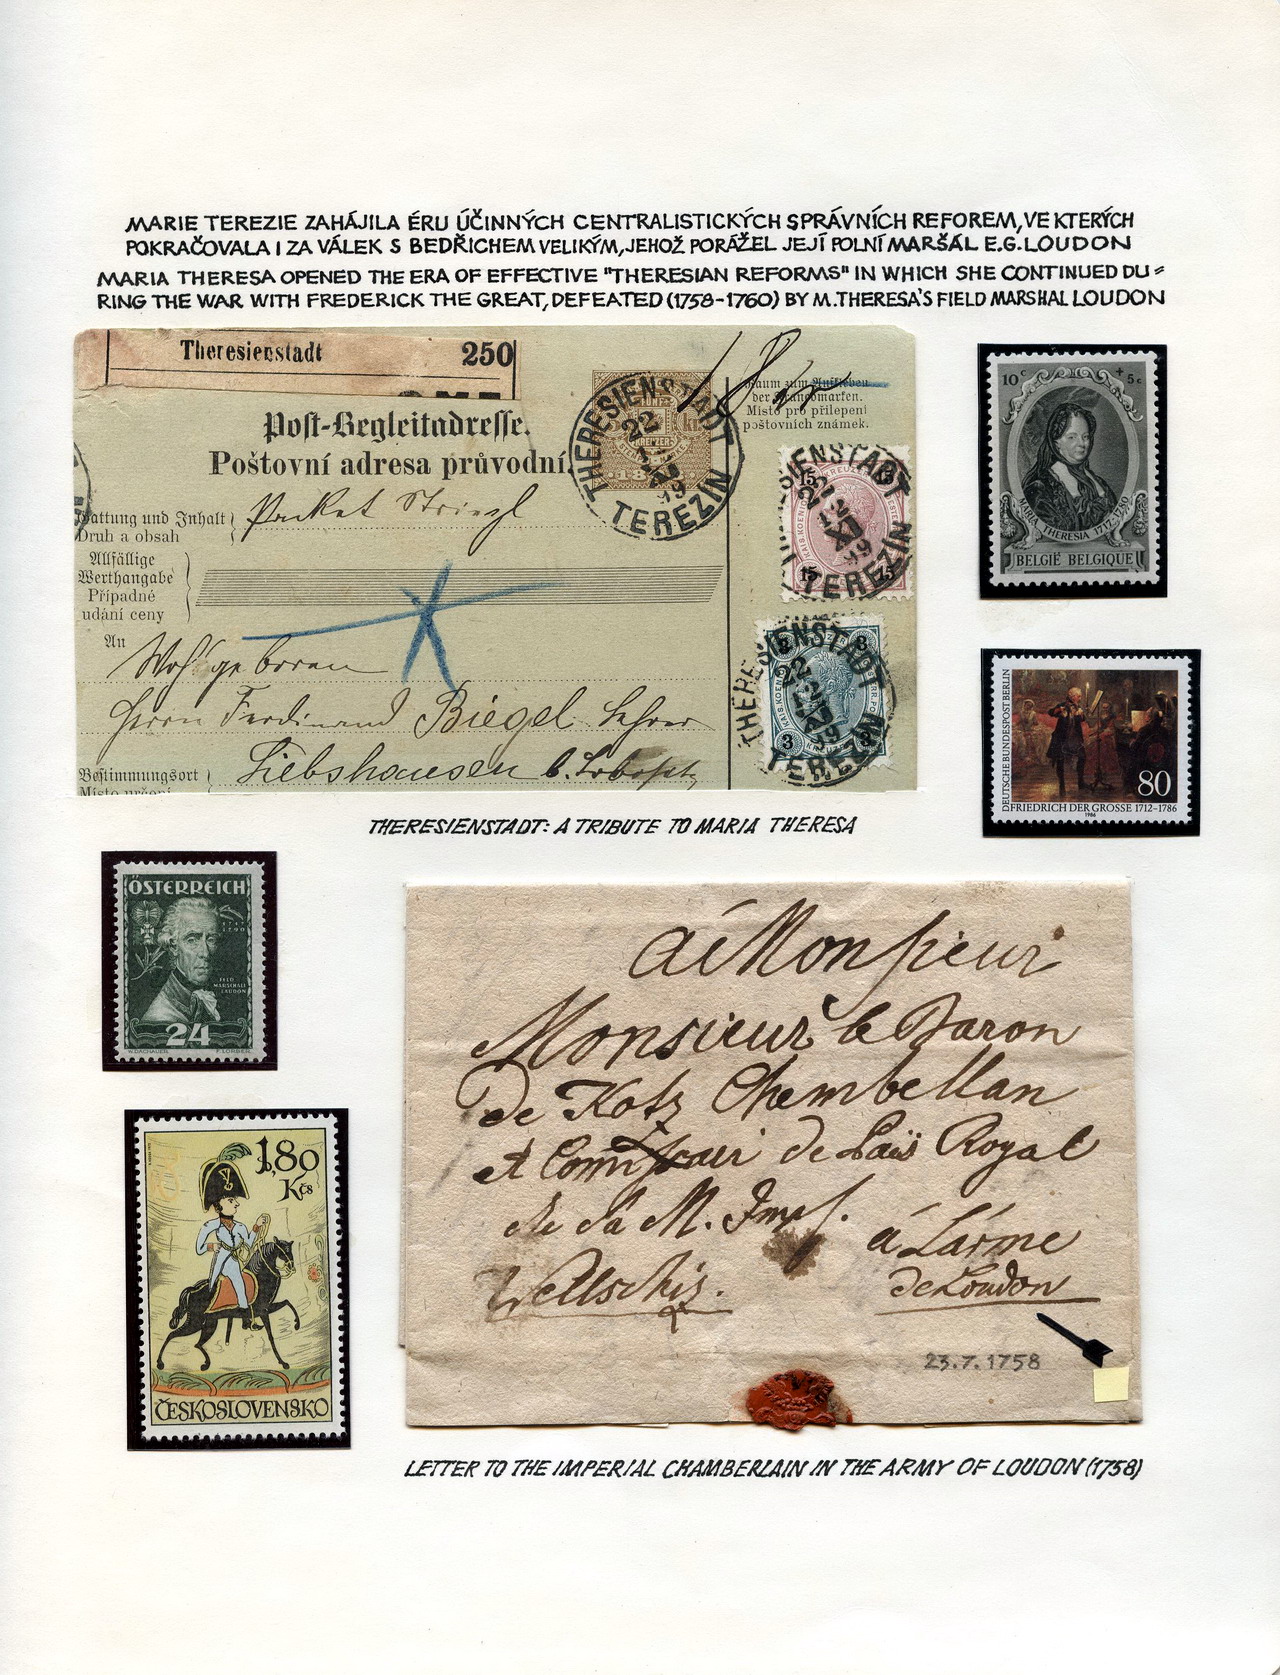 MARIE TEREZIE ZAHÁJILA ÉRU ÚČINNÝCH CENTRALISTICKÝCH SPRÁVNÍCH REFOREM, VE KTERÝCH
POKRAČOVALA I ZA VÁLEK S BEDŘICHEM VELIKÝM, JEHOŽ PORÁŽEL JEJÍ POLNÍ MARŠÁL E.G. LOUDON
MARIA THERESA OPENED THE ERA OF EFFECTIVE "THERESIAN REFORMS" IN WHICH SHE CONTINUED DU=
RING THE WAR WITH FREDERICK THE GREAT, DEFEATED (1758-1760) BY M. THERESA'S FIELD MARSHAL LOUDON
Theresienstadt 250
Post-Begleitadresse.
Poštovní adresa průvodní.
Gattung und Inhalt
Druh a obsah
Packet
Allfällige
Werthangabe
Případné
udání ceny
An
Wohlgeboren
Herrn Ferdinand Biegel Lehrer
Bestimmungsort
Místo určení
Liebshausen b. Lobositz
Raum zum Aufkleben
der Frankomarken.
Místo pro přilepení
poštovních známek.
THERESIENSTADT
22
TEREZÍN
KREUZER
THERESIENSTADT
22
12
XII
TEREZÍN
15 15
THERESIENSTADT
22
TEREZÍN
3 3
10c + 5c
MARIA THERESIA 1717-1780
BELGIË BELGIQUE
DEUTSCHE BUNDESPOST BERLIN
80
FRIEDRICH DER GROSSE 1712-1786
1986
THERESIENSTADT: A TRIBUTE TO MARIA THERESA
ÖSTERREICH
1717
1790
FELD
MARSCHALL
LAUDON
24
W. DACHAUER. F. LORBER.
1,80
Kčs
ČESKOSLOVENSKO
à Monsieur
Monsieur le Baron
de Kotz Chambellan
et de Païs Royal
de Sa M. Imp.
à L'armee
de Loudon
23.7.1758
LETTER TO THE IMPERIAL CHAMBERLAIN IN THE ARMY OF LOUDON (1758)